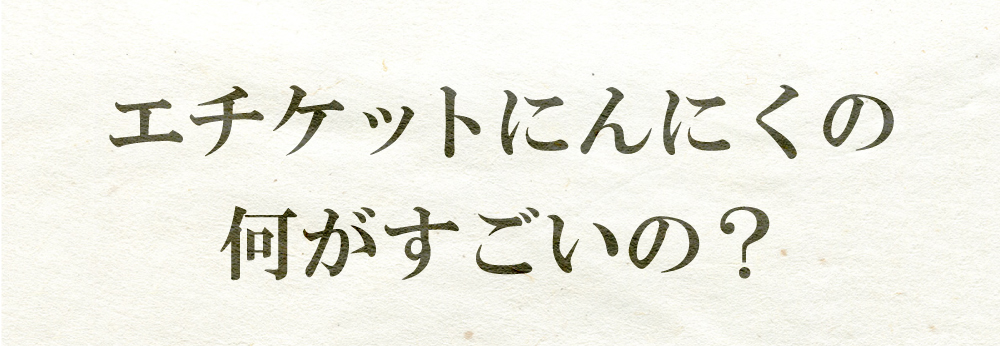 エチケットにんにくの
何がすごいの？